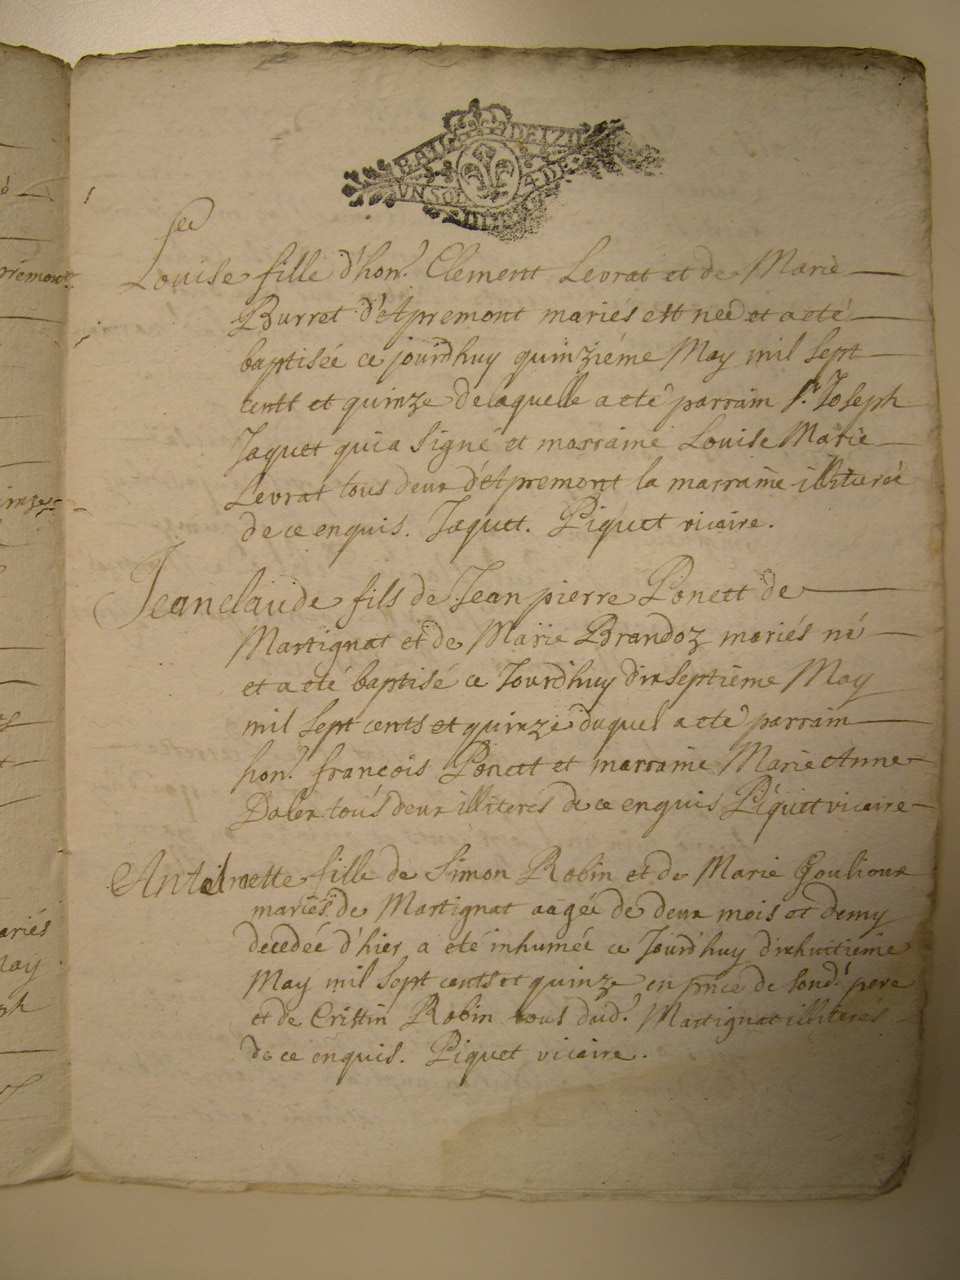 UN SOL 4 DE
Louise fille d'hon.^e Clement Levrat et de Marie
Burret d'Apremont mariés est neé et a eté
baptiséé ce jourdhuy quinziéme May mil sept
centt et quinze de laquelle a eté parrain s.^r Joseph
Jaquet qui a signé et marraine Louise Marie
Levrat tous deux d'Apremont la marraine illiteréé
de ce enquis. Jaquet. Piquet vicaire.
Jeanclaude fils de Jean pierre Ponett de
Martignat et de Marie Brandoz mariés né
et a eté baptisé ce Jourdhuy dixseptieme May
mil sept cents et quinze duquel a eté parrain
hon.^e francois Ponett et marraine Marie Anne
tous deux illiterés de ce enquis Piquet vicaire
Antoinette fille de Simon Robin et de Marie Goulioux
mariés de Martignat aagéé de deux mois et demy
decedéé d'hier a eté inhuméé ce Jourd'huy dixhuitieme
May mil sept cents et quinze en pnce de sond.^t pere
et de Cristin Robin tous dud.^t Martignat illiterés
de ce enquis. Piquet vicaire.
priemont
inze
ariés
May
ph